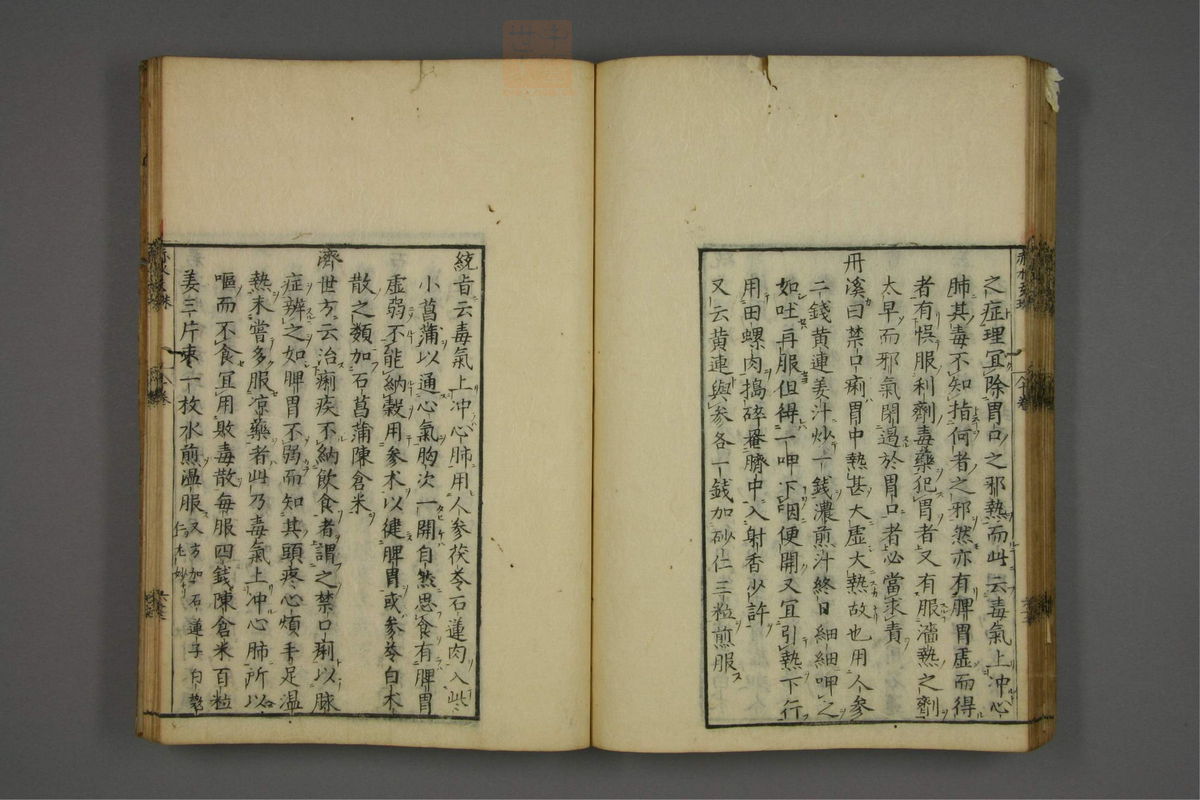 之症理冝除胃口之邪熱而此云毒氣上冲心
肺其毒不知指何者之邪然亦有脾胃虛而得
者有悞服利劑毒藥犯胃者又有服濇熱之劑
太早而邪氣閉遏於胃口者必當求責
丹溪曰禁口痢胃中熱甚大虛大熱故也用人參
二錢黃連姜汁炒一錢濃煎汁終日細細呷之
如吐再服但得一呷下因便開又冝引熱下行
用田螺肉搗碎罨臍中入射香少許
又云黃連與參各一錢加砂仁三粒煎服
統旨云毒氣上冲心肺用人參茯苓石蓮肉入些
小菖蒲以通心氣胸次一開自然思食有脾胃
虛弱不能納穀用參朮以健脾胃或參苓白朮
散之類加石菖蒲陳倉米
濟世方云治痢疾不納飲食者謂之禁口痢以脉
症辨之如脾胃不弱而知其頭疼心煩手足温
熱未嘗多服凉藥者此乃毒氣上冲心肺所以
嘔而不食冝用敗毒散每服四錢陳倉米百粒
姜三片棗一枚水煎温服又方加石蓮子肉